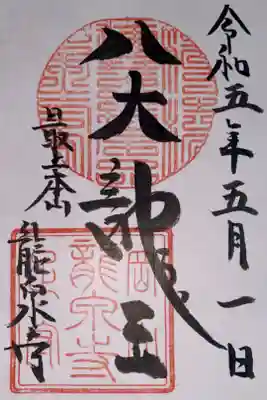 令和五年五月一日
八大龍王
最上本山
龍泉寺